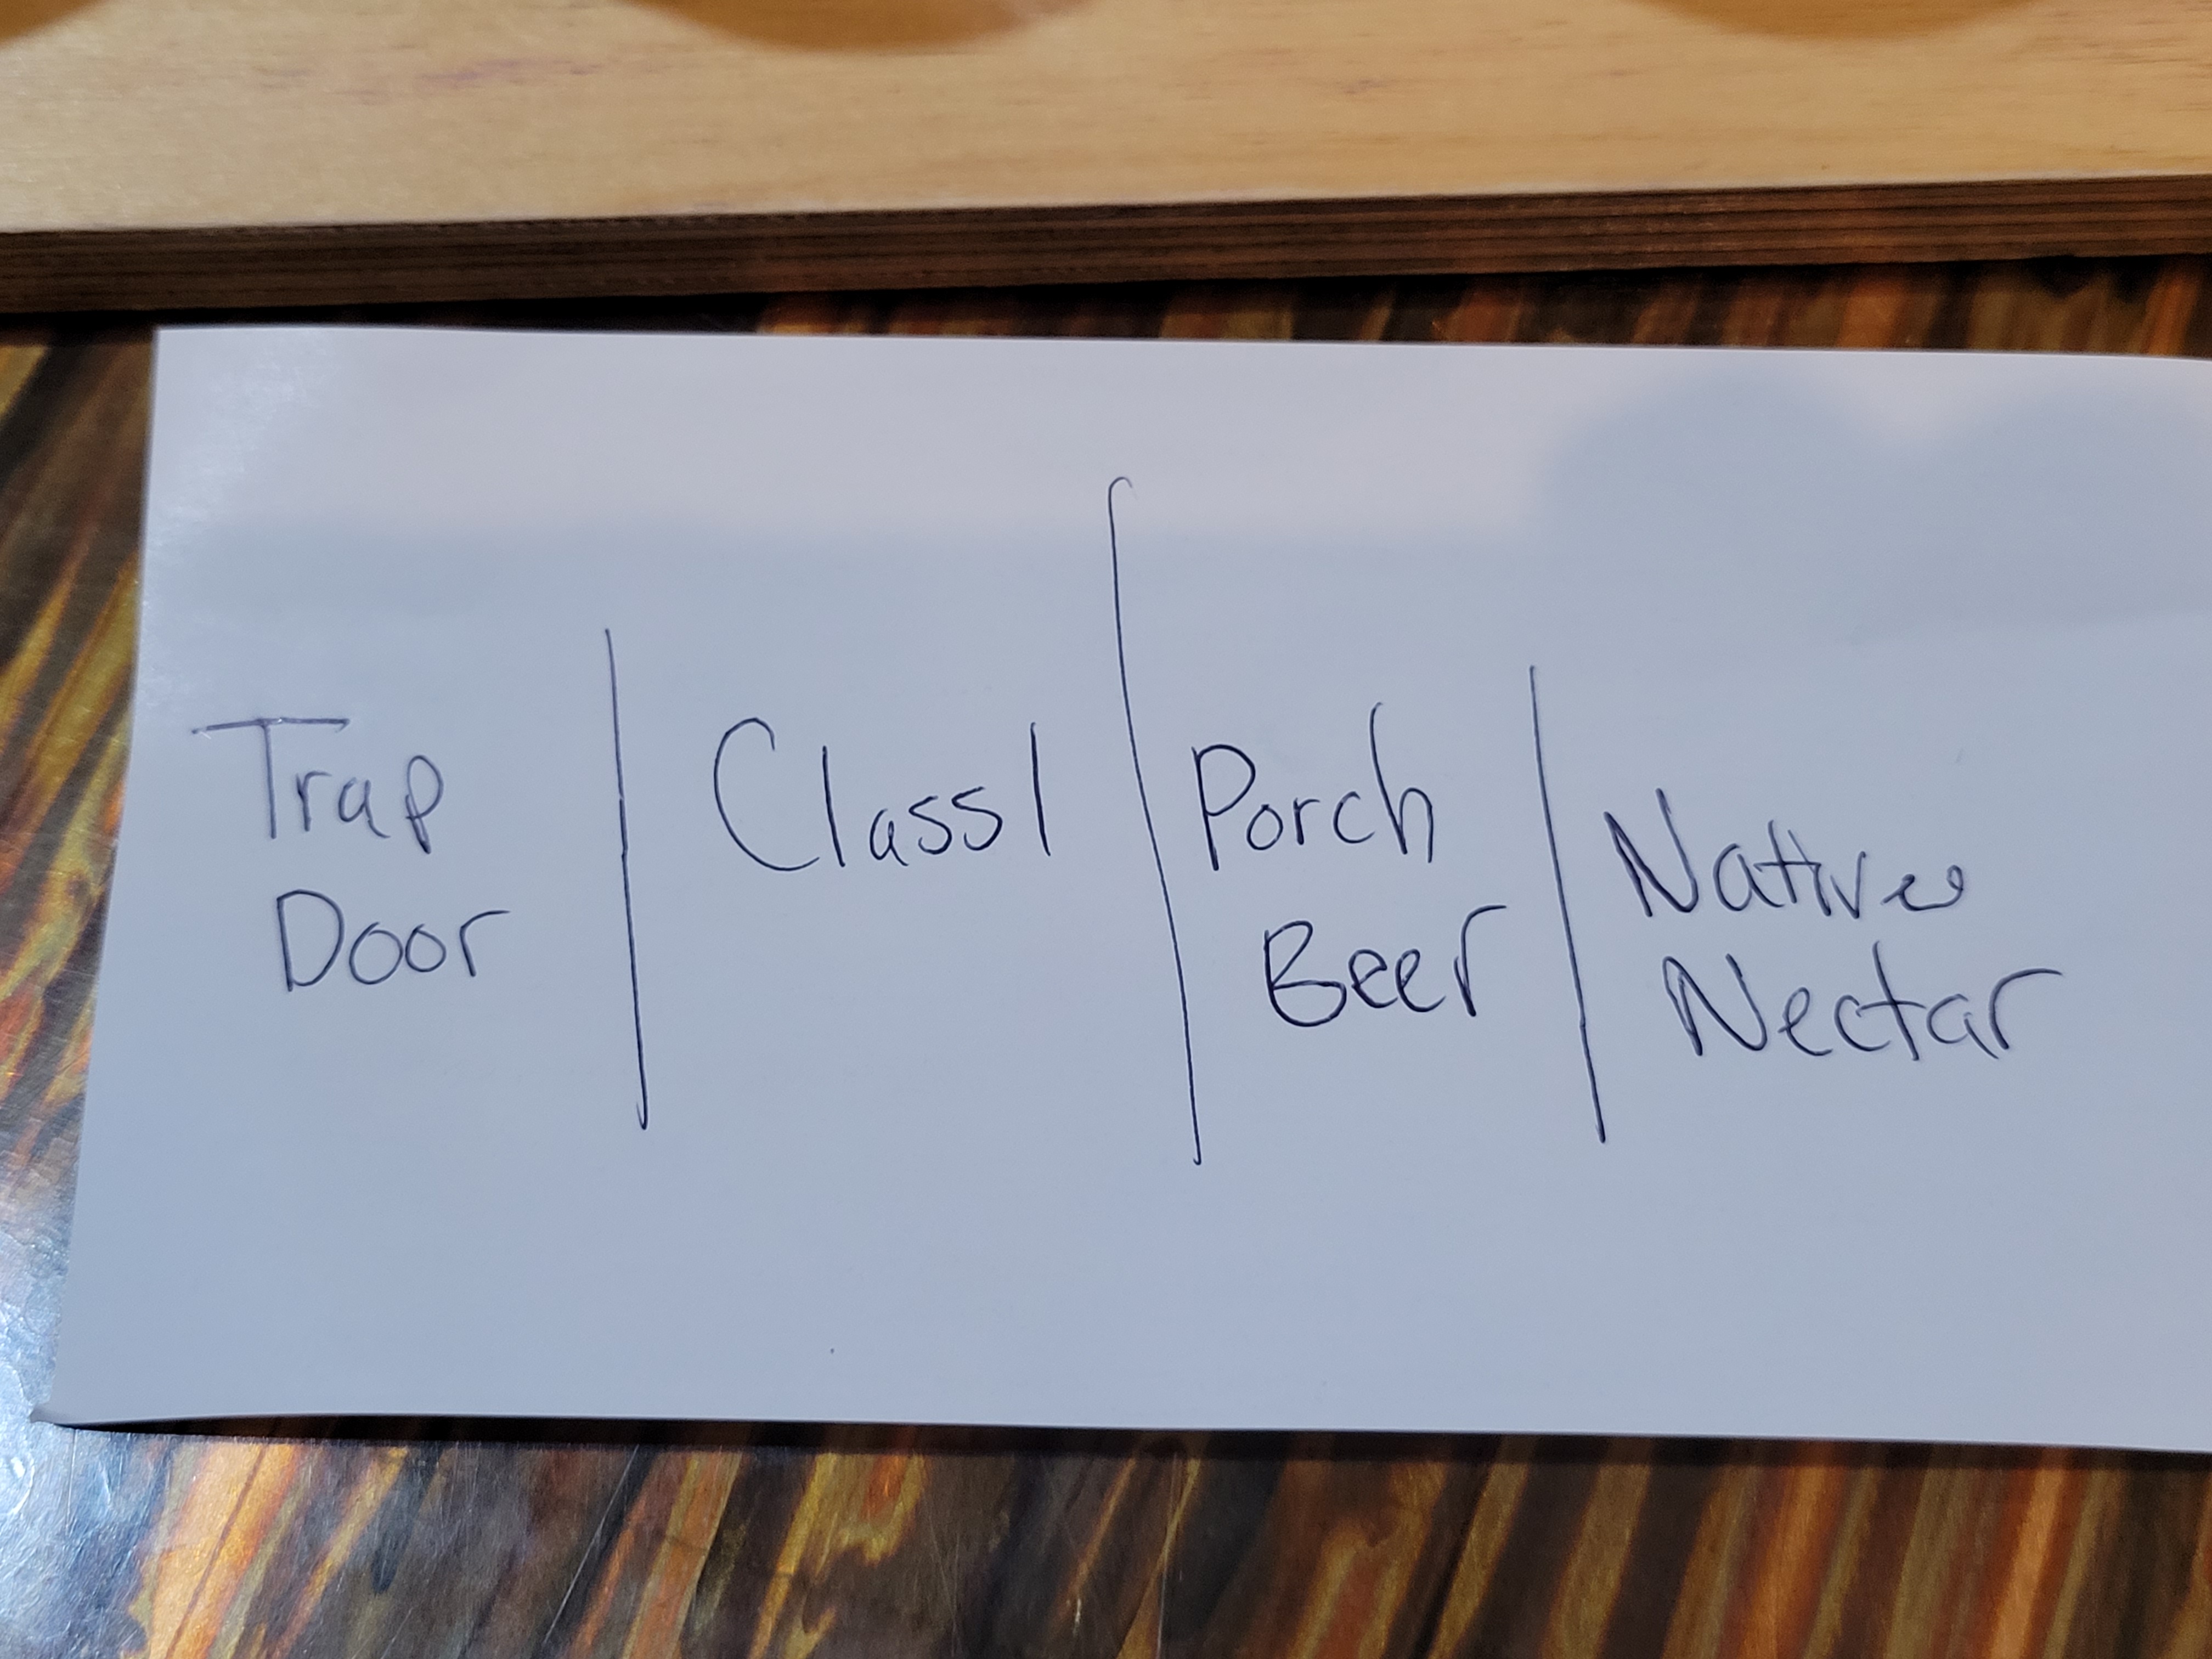 Trap
Door
Class 1
Porch
Beer
Native
Nectar